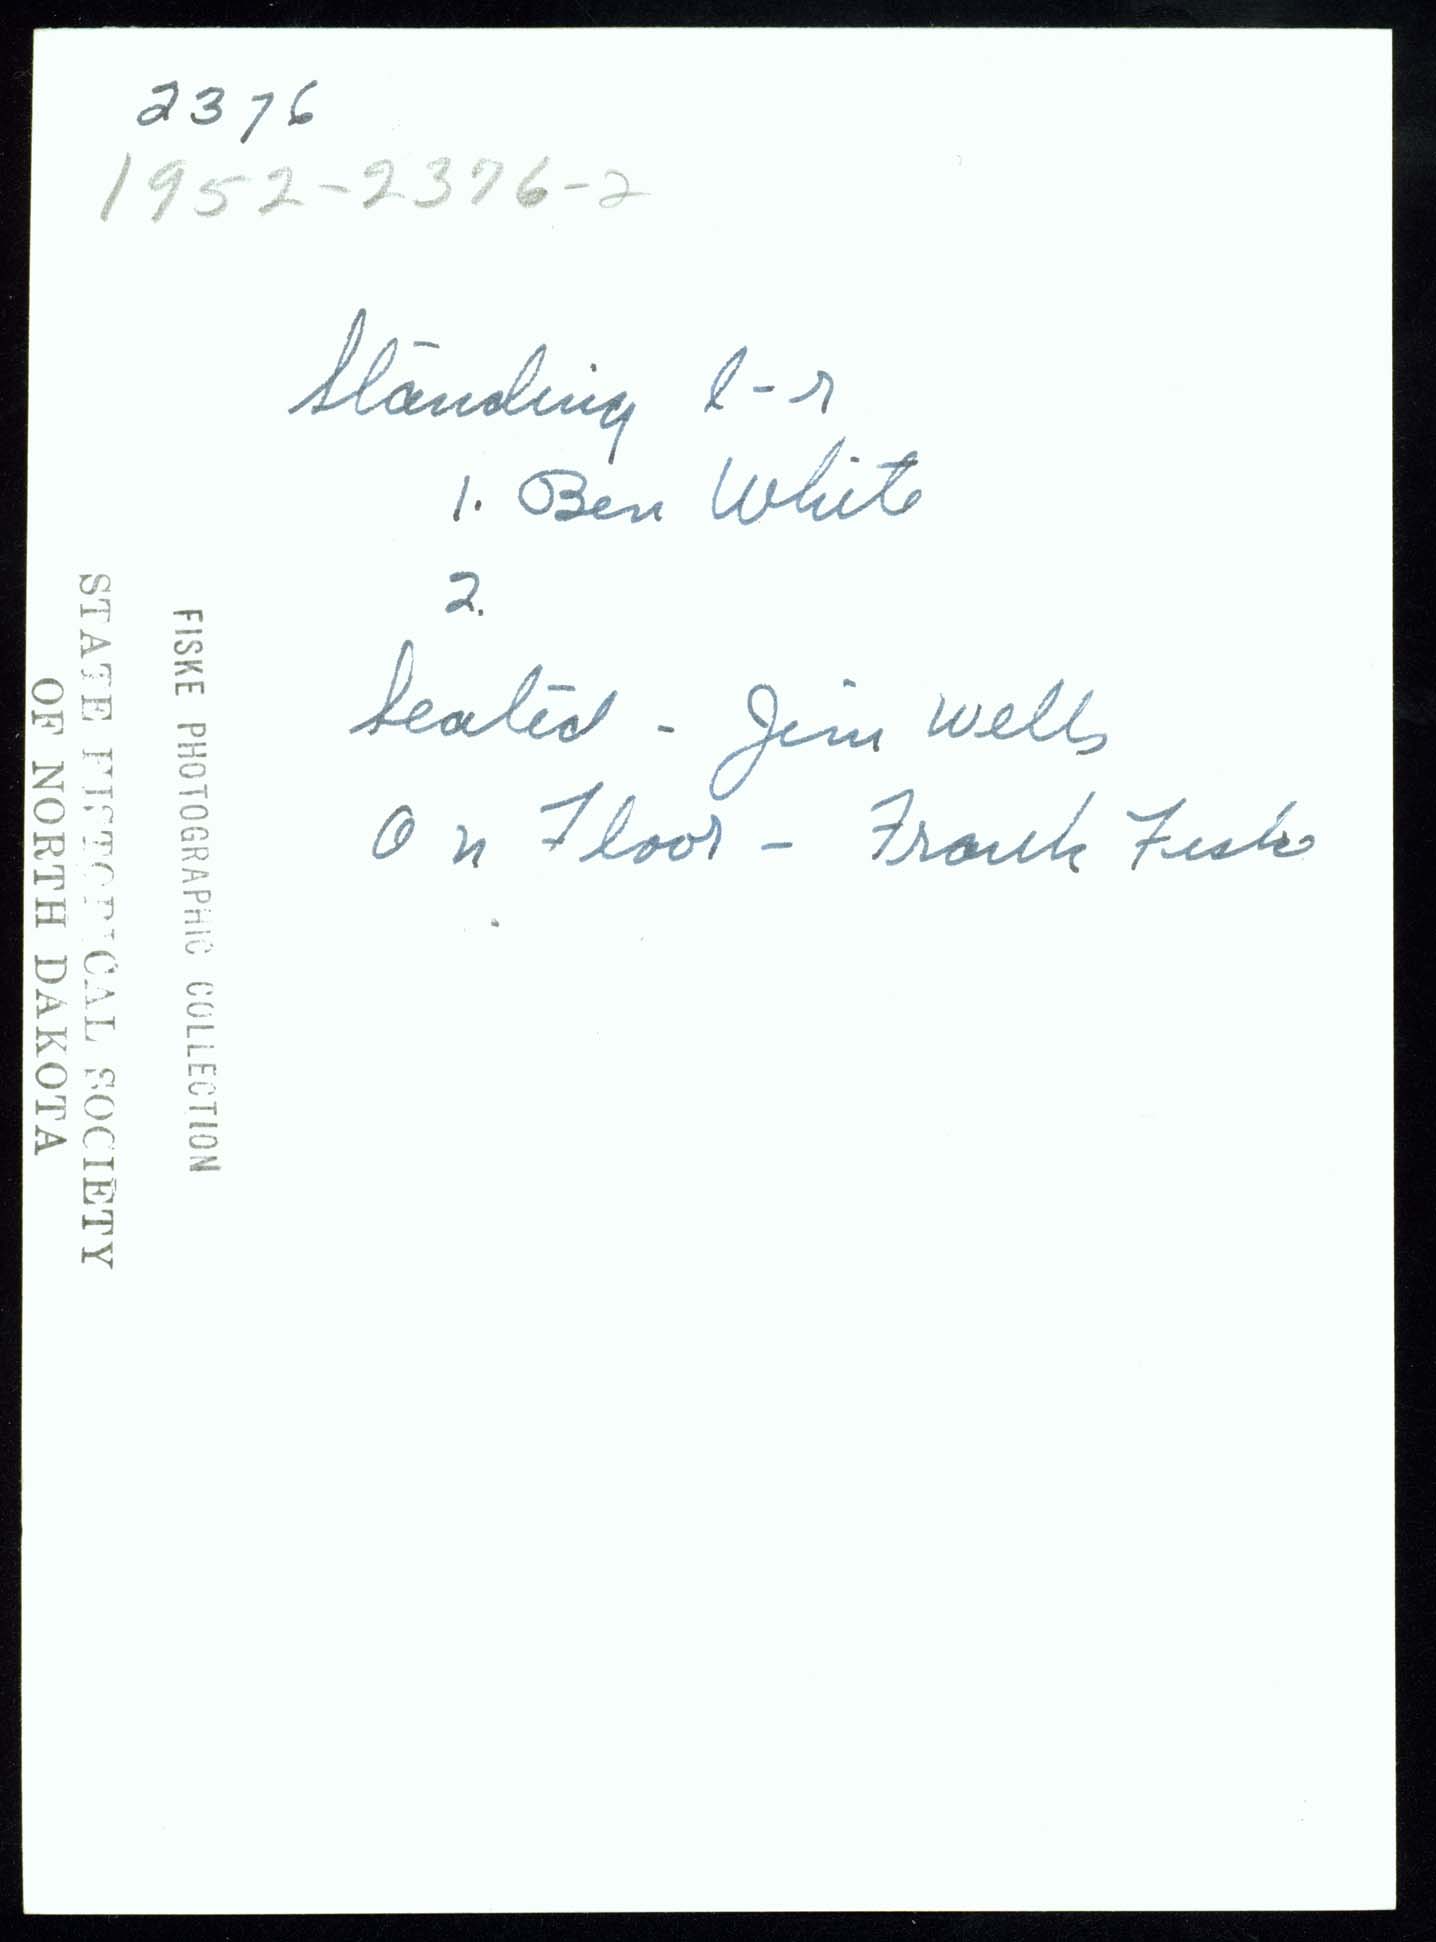 2376
1952-2376-2
Standing l-r
1. Ben White
2.
Seated - Jim Wells
On Floor - Frank Fiske
FISKE PHOTOGRAPHIC COLLECTION
STATE HISTORICAL SOCIETY
OF NORTH DAKOTA